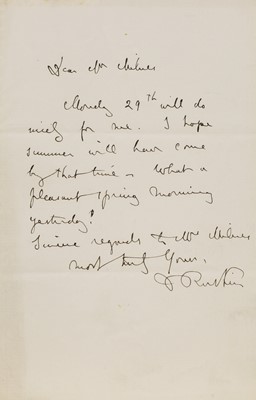 Dear Mr Milnes
Monday 29th will do
nicely for me. I hope
summer will have come
by that time – What a
pleasant spring morning
yesterday!
Sincere regards to Mrs Milnes
most truly Yours,
J Ruskin